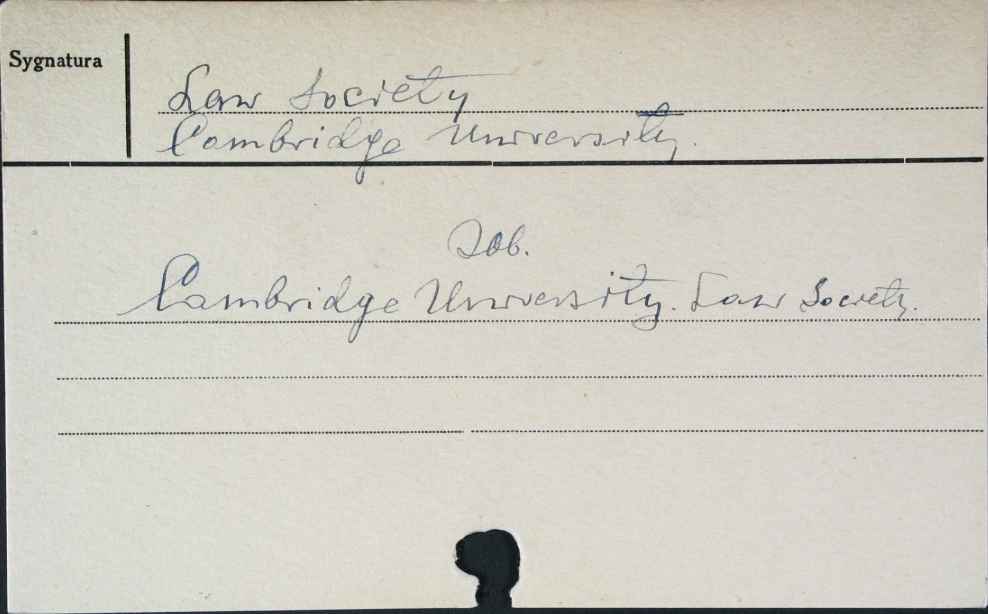 Sygnatura
Law Society
Cambridge University.
Zob.
Cambridge University. Law Society.